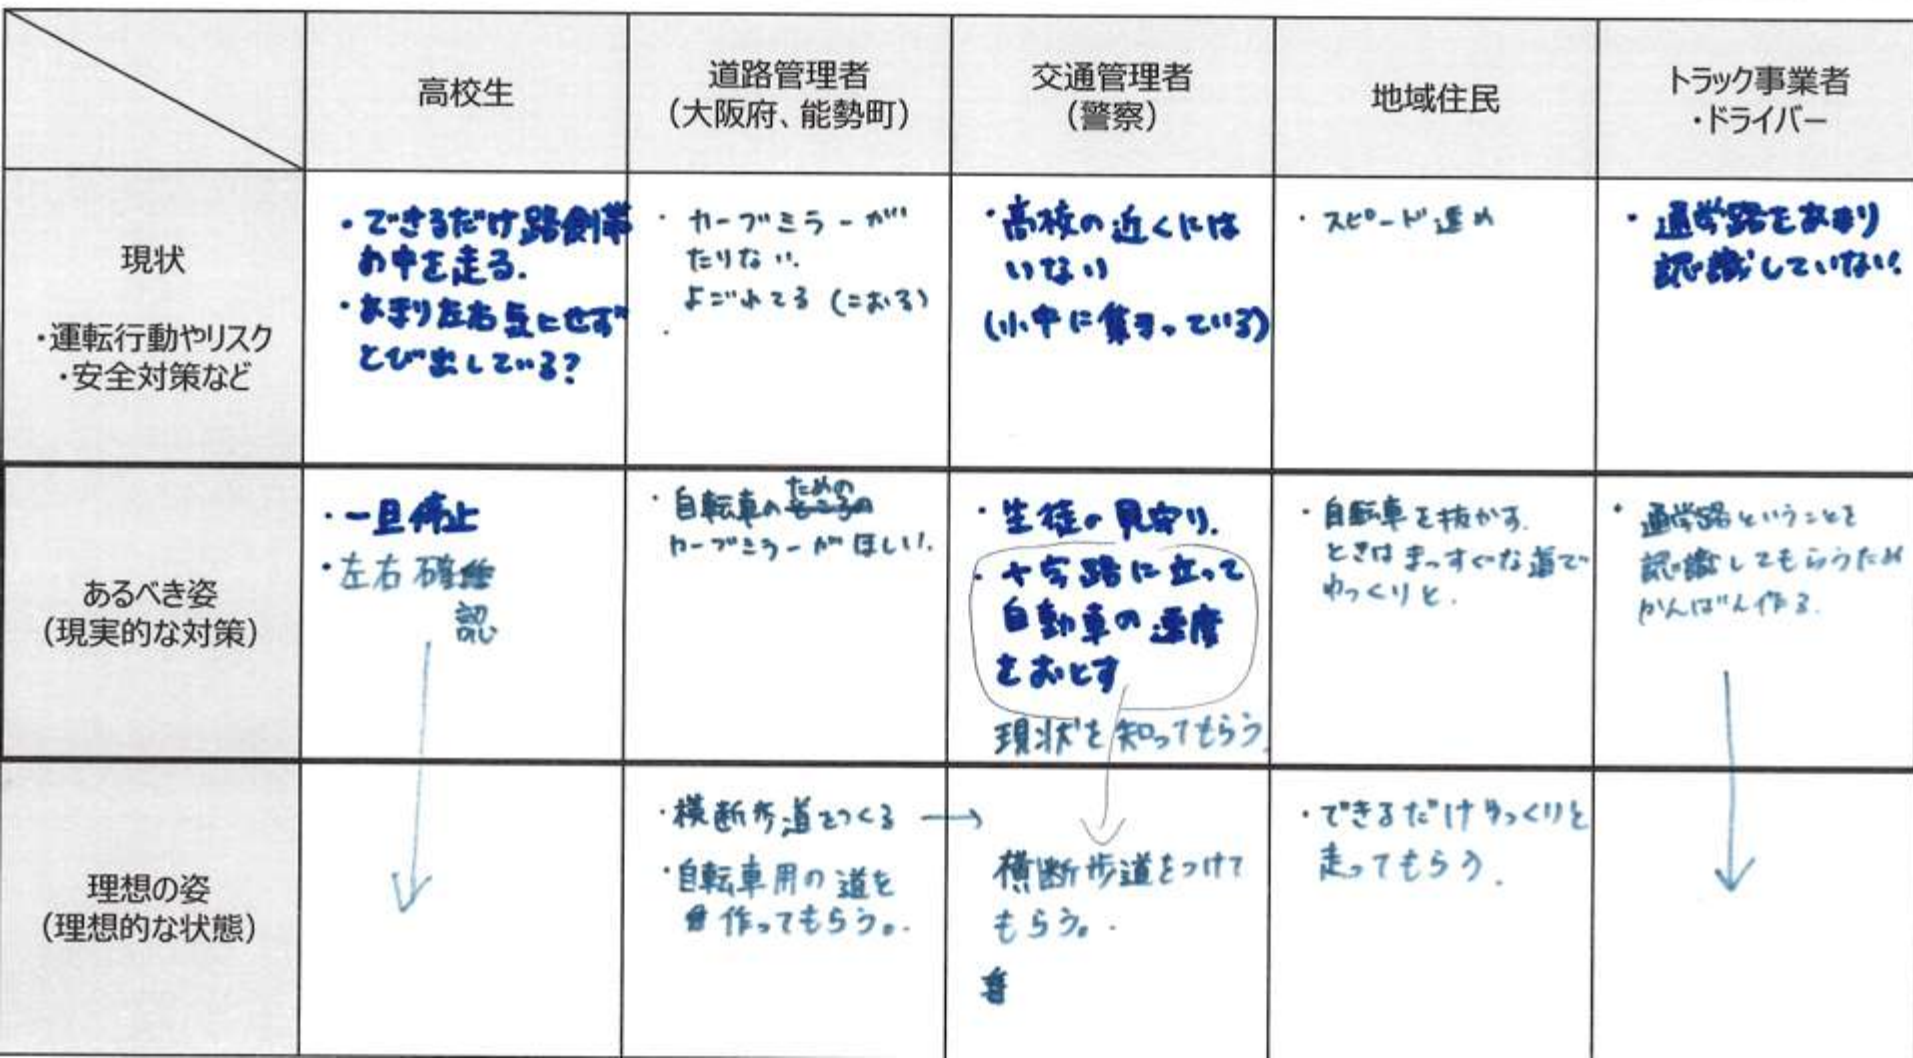 高校生
道路管理者
（大阪府、能勢町）
交通管理者
（警察）
地域住民
トラック事業者
・ドライバー
現状
・運転行動やリスク
・安全対策など
・できるだけ路側帯
の中を走る.
・あまり左右気にせず
とび出している?
・カーブミラーが
たりない.
よごれてる(こおる)
・高校の近くには
いない
(小中に集まっている)
・スピード速め
・通学路をあまり
認識していない.
あるべき姿
（現実的な対策）
・一旦停止
・左右確
認
・自転車のための
カーブミラーがほしい.
・生徒の見守り.
・十字路に立って
自動車の速度
をおとす
現状を知ってもらう.
・自転車を抜かす.
ときはまっすぐな道で
ゆっくりと.
・通学路ということを
認識してもらうため
かんばん作る.
理想の姿
（理想的な状態）
・横断歩道をつくる →
・自転車用の道を
作ってもらう。
横断歩道をつけて
もらう。
・できるだけゆっくりと
走ってもらう.